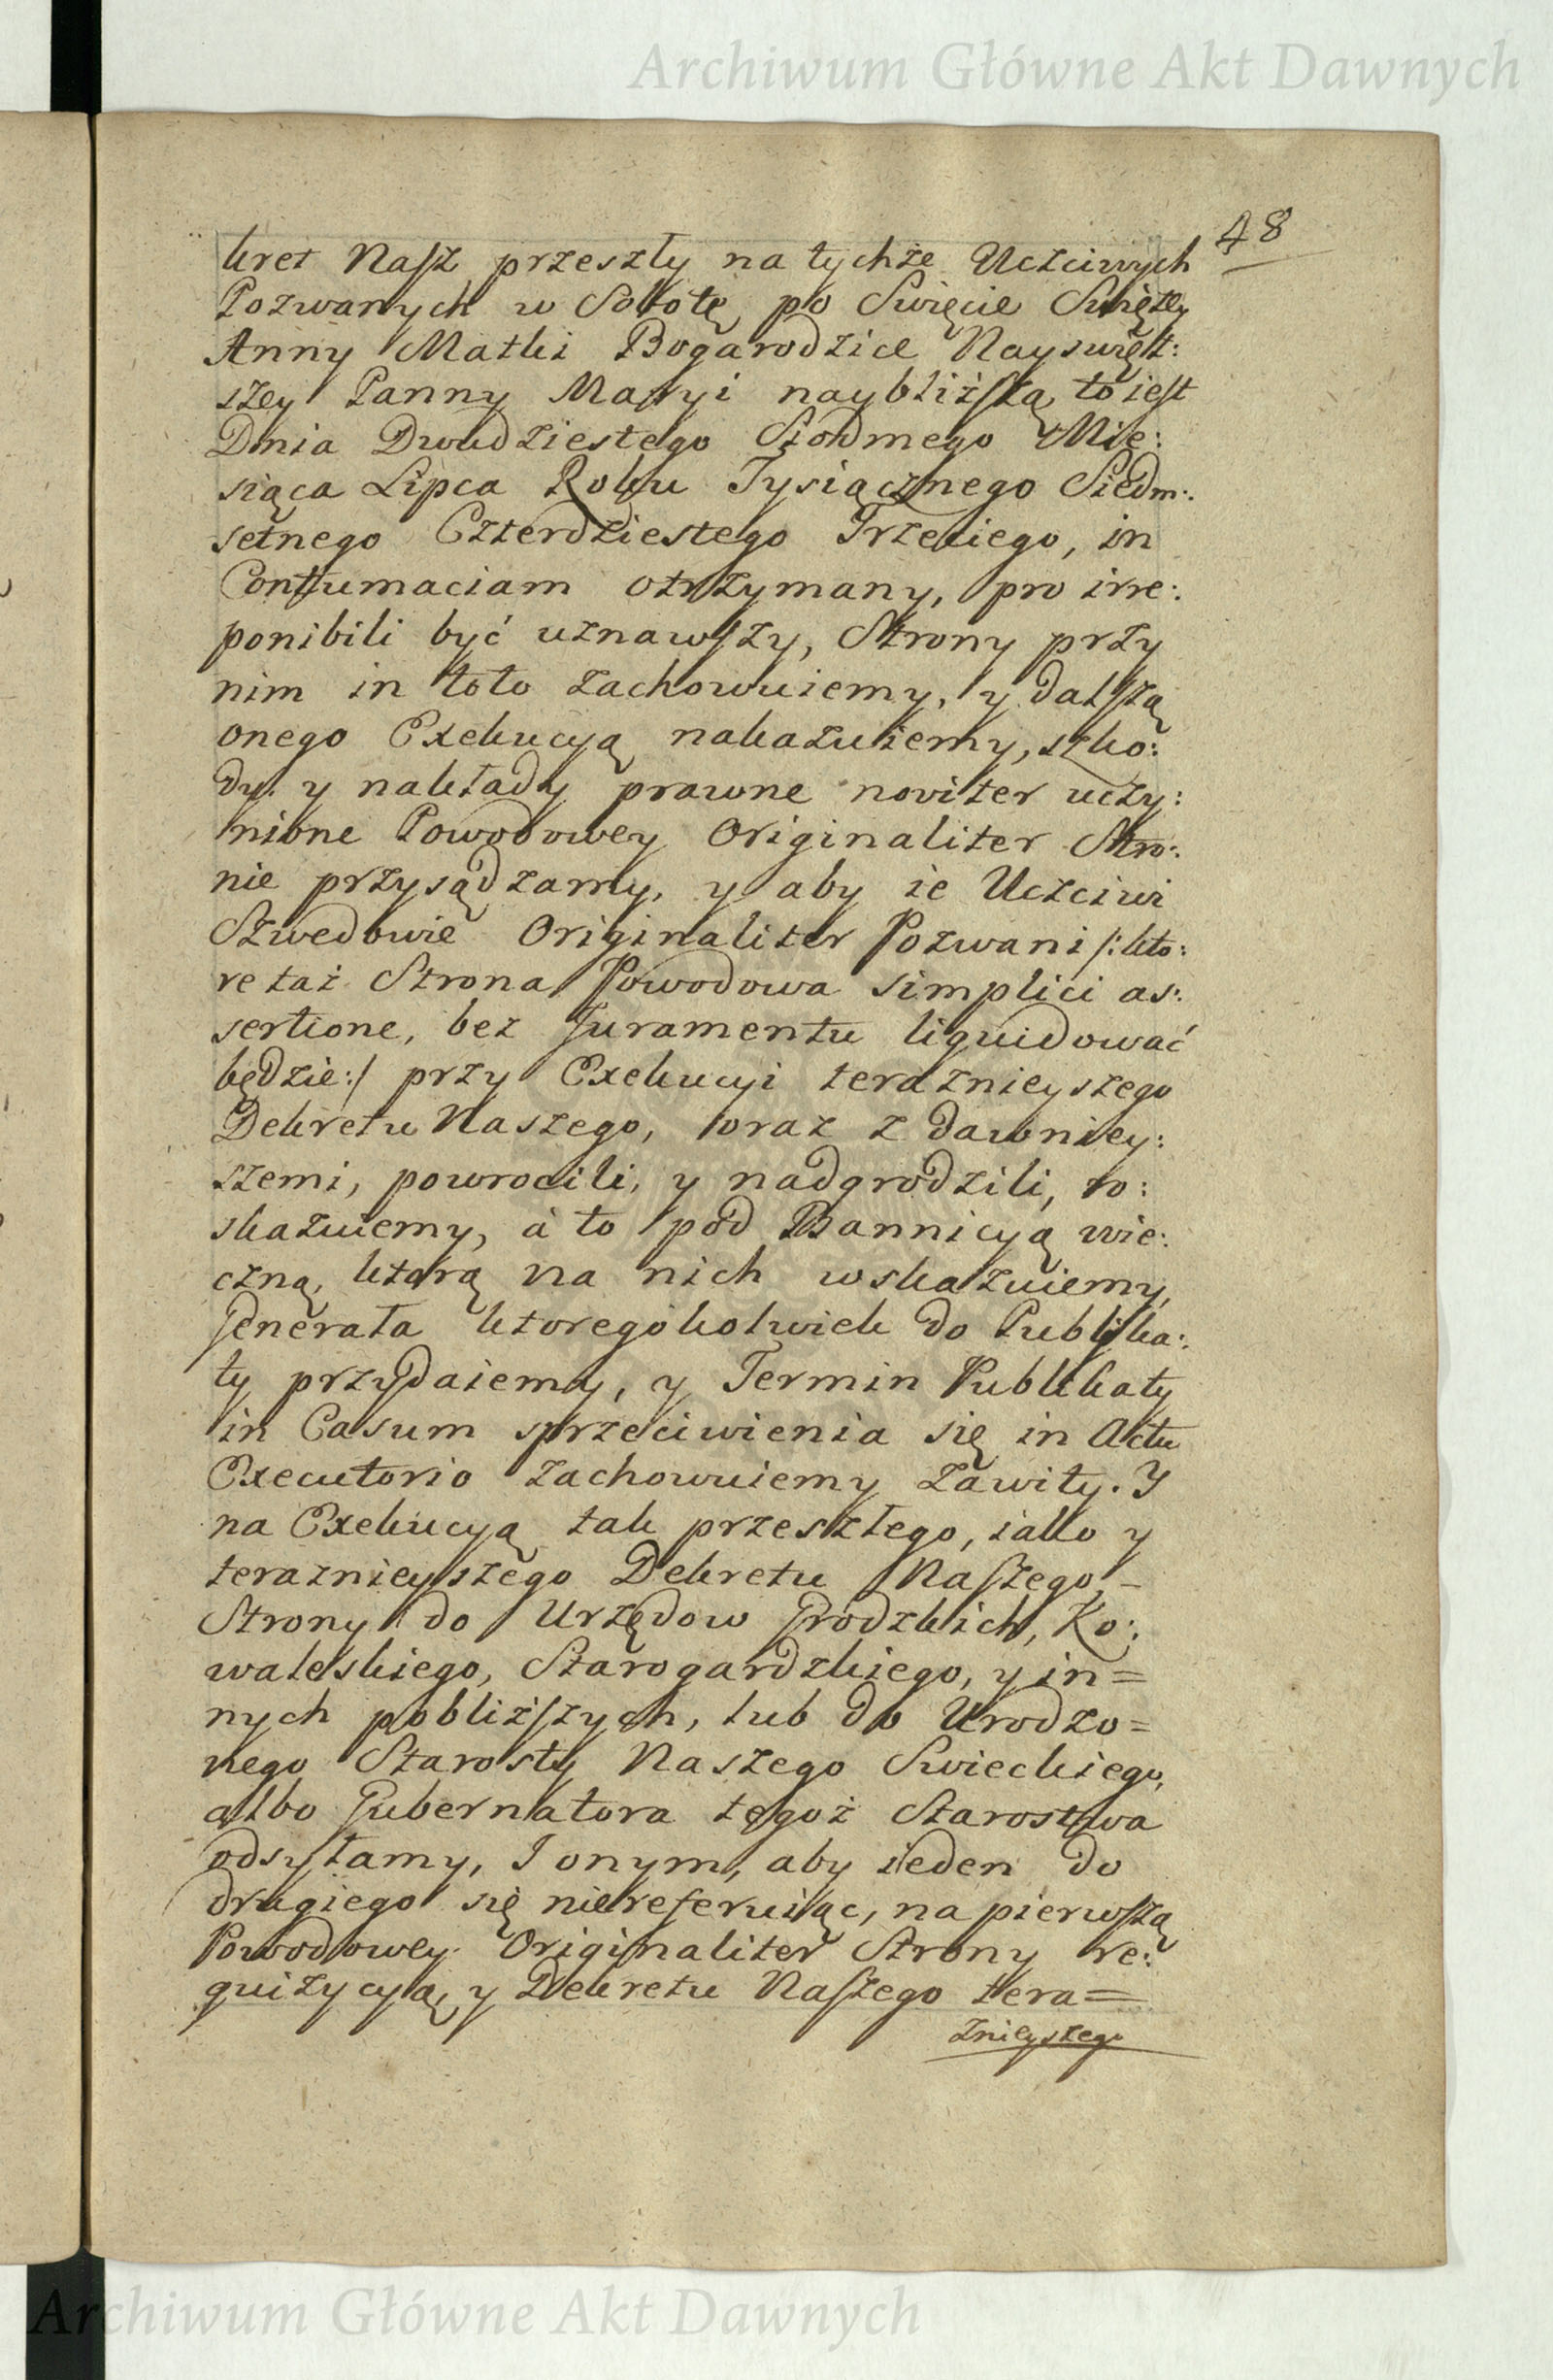 Archiwum Główne Akt Dawnych
48
kret Nasz przeszły na tychże Uczciwych
Pozwanych w Sobotę po Swięcie Swiętey
Anny Matki Bogarodzice Nayswięt:
szey Panny Maryi naybliższą to iest
Dnia Dwudziestego Siodmego Mie:
siąca Lipca Roku Tysiącznego Siedm:
setnego Czterdziestego Trzeciego, in
Contumaciam otrzymany, pro irre:
ponibili być uznawszy, Strony przy
nim in toto zachowuiemy, y dalszą
onego Exekucyą nakazuiemy, szko:
dy y nakłady prawne noviter uczy:
nione Powodowey Originaliter Stro:
nie przysądzamy, y aby ie Uczciwi
Szwedowie Originaliter Pozwani /: kto:
re taż Strona Powodowa simplici as:
sertione, bez Juramentu liquidować
będzie :/ przy Exekucyi teraznieyszego
Dekretu Naszego, oraz z dawniey:
szemi, powrocili, y nadgrodzili, ro:
skazuiemy, à to pod Bannicyą wie:
czną, ktorą na nich wskazuiemy,
Jenerała ktoregokolwiek do Publika:
ty przydaiemy, y Termin Publikaty
in Casum sprzeciwienia się in Actu
Executorio zachowuiemy zawity. Y
na Exekucyą tak przeszłego, iako y
teraznieyszego Dekretu Naszego, -
Strony do Urzędow Grodzkich, Ko:
waleskiego, Starogardzkiego, y in=
nych pobliższych, lub do Urodzo=
nego Starosty Naszego Swieckiego,
albo Gubernatora tegoż Starostwa
odsyłamy, I onym, aby ieden do
drugiego się niereferuiąc, na pierwszą
Powodowey Originaliter Strony re:
quizycyą, y Dekretu Naszego tera=
znieyszego
Archiwum Główne Akt Dawnych